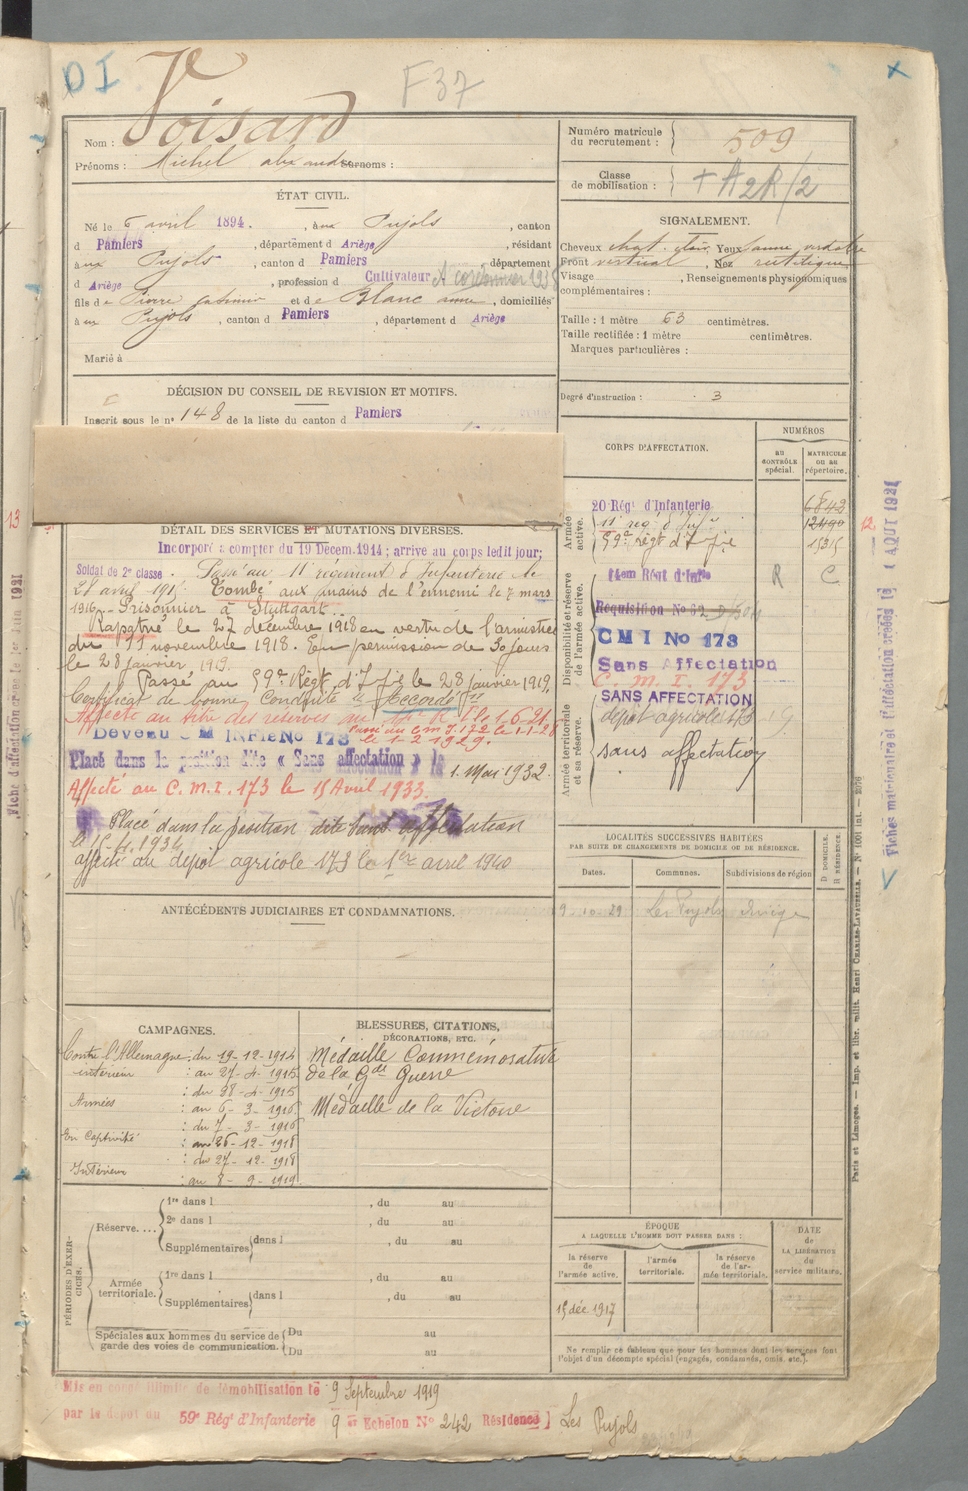 DI
F37
Nom : Voisard
Prénoms : Michel Alexandre Surnoms :
Numéro matricule du recrutement : 509
Classe de mobilisation : + A2R/2
ÉTAT CIVIL.
Né le 6 avril 1894. , aux Pujols , canton
d Pamiers , département d Ariège , résidant
aux Pujols , canton d Pamiers , département
d Ariège , profession d Cultivateur
fils de Pierre et de Blanc anne , domiciliés
aux Pujols , canton d Pamiers , département d Ariège
Marié à
SIGNALEMENT.
Cheveux chat. clair Yeux jaune verdâtre
Front vertical , Nez rectiligne
Visage , Renseignements physionomiques
complémentaires :
Taille : 1 mètre 63 centimètres.
Taille rectifiée : 1 mètre centimètres.
Marques particulières :
Degré d'instruction : 3
DÉCISION DU CONSEIL DE REVISION ET MOTIFS.
Inscrit sous le nº 148 de la liste du canton d Pamiers
CORPS D'AFFECTATION.
NUMÉROS
au CONTRÔLE spécial.
MATRICULE ou au répertoire.
Armée active.
20 Régt d'Infanterie 6843
11e reg. d'Infie 12490
59e Régt d'Infie 15315
Disponibilité et réserve de l'armée active.
14em Régt d'Infie R C
Requisition No 62
CMI No 173
Sans Affectation
C. m. I. 173
SANS AFFECTATION
Armée territoriale et sa réserve.
dépôt agricole 173
sans affectation
DÉTAIL DES SERVICES ET MUTATIONS DIVERSES.
Incorporé à compter du 19 Décem. 1914 ; arrivé au corps ledit jour;
Soldat de 2e classe. Passé au 11e régiment d'Infanterie le
28 avril 1915 Tombé aux mains de l'ennemi le 7 mars
1916. Prisonnier à Stuttgart.
Rapatrié le 27 décembre 1918 en vertu de l'armistice
du 11 novembre 1918. En permission de 30 jours
le 28 janvier 1919.
Passé au 59e Régt d'Infie le 28 janvier 1919.
Certificat de bonne Conduite "Accordé"
Affecté au titre des réserves au 14e R.I. le 1.6.21.
Passé au C M I 172 le 1-1-28
Devenu C M INFIE No 173 le 1-2 1929.
Placé dans la position dite « Sans affectation » le 1. Mai 1932.
Affecté au C. M. I. 173 le 15 Avril 1933.
Placé dans la position dite Sans affectation
affecté au dépôt agricole 173 le 1er avril 1940
LOCALITÉS SUCCESSIVES HABITÉES
PAR SUITE DE CHANGEMENTS DE DOMICILE OU DE RÉSIDENCE.
Dates. Communes. Subdivisions de région D DOMICILE. R RÉSIDENCE.
9-10-29 Les Pujols Ariège
ANTÉCÉDENTS JUDICIAIRES ET CONDAMNATIONS.
CAMPAGNES.
Contre l'Allemagne : du 19-12-1914
intérieur : au 27-4-1915
: du 28-4-1915
Armées : au 6-3-1916
: du 7-3-1916
En Captivité : au 26-12-1918
: du 27-12-1918
Intérieur : au 8-9-1919
BLESSURES, CITATIONS,
DÉCORATIONS, ETC.
Médaille Commémorative
de la Gde Guerre
Médaille de la Victoire
PÉRIODES D'EXERCICES.
Réserve....
1re dans l , du au
2e dans l , du au
Supplémentaires dans l , du au
Armée territoriale.
1re dans l , du au
Supplémentaires dans l , du au
Spéciales aux hommes du service de garde des voies de communication.
Du au
Du au
ÉPOQUE
A LAQUELLE L'HOMME DOIT PASSER DANS :
la réserve de l'armée active.
l'armée territoriale.
la réserve de l'armée territoriale.
DATE de LA LIBÉRATION du service militaire.
15 déc 1917
Ne remplir ce tableau que pour les hommes dont les services font
l'objet d'un décompte spécial (engagés, condamnés, omis, etc.).
Mis en congé illimité de démobilisation le 9 Septembre 1919
par le dépôt du 59e Régt d'Infanterie 9e Echelon No 242 Résidence Les Pujols
Paris et Limoges. — Imp. et libr. milit. Henri CHARLES-LAVAUZELLE. — Nº 1001 int. — 2076